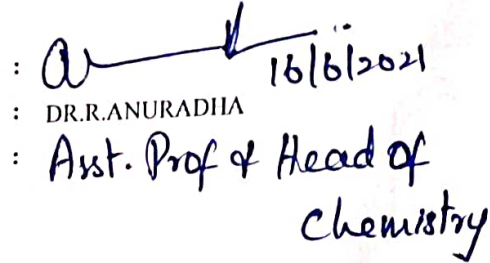 : 16/6/2021
: DR.R.ANURADHA
: Asst. Prof & Head of
Chemistry